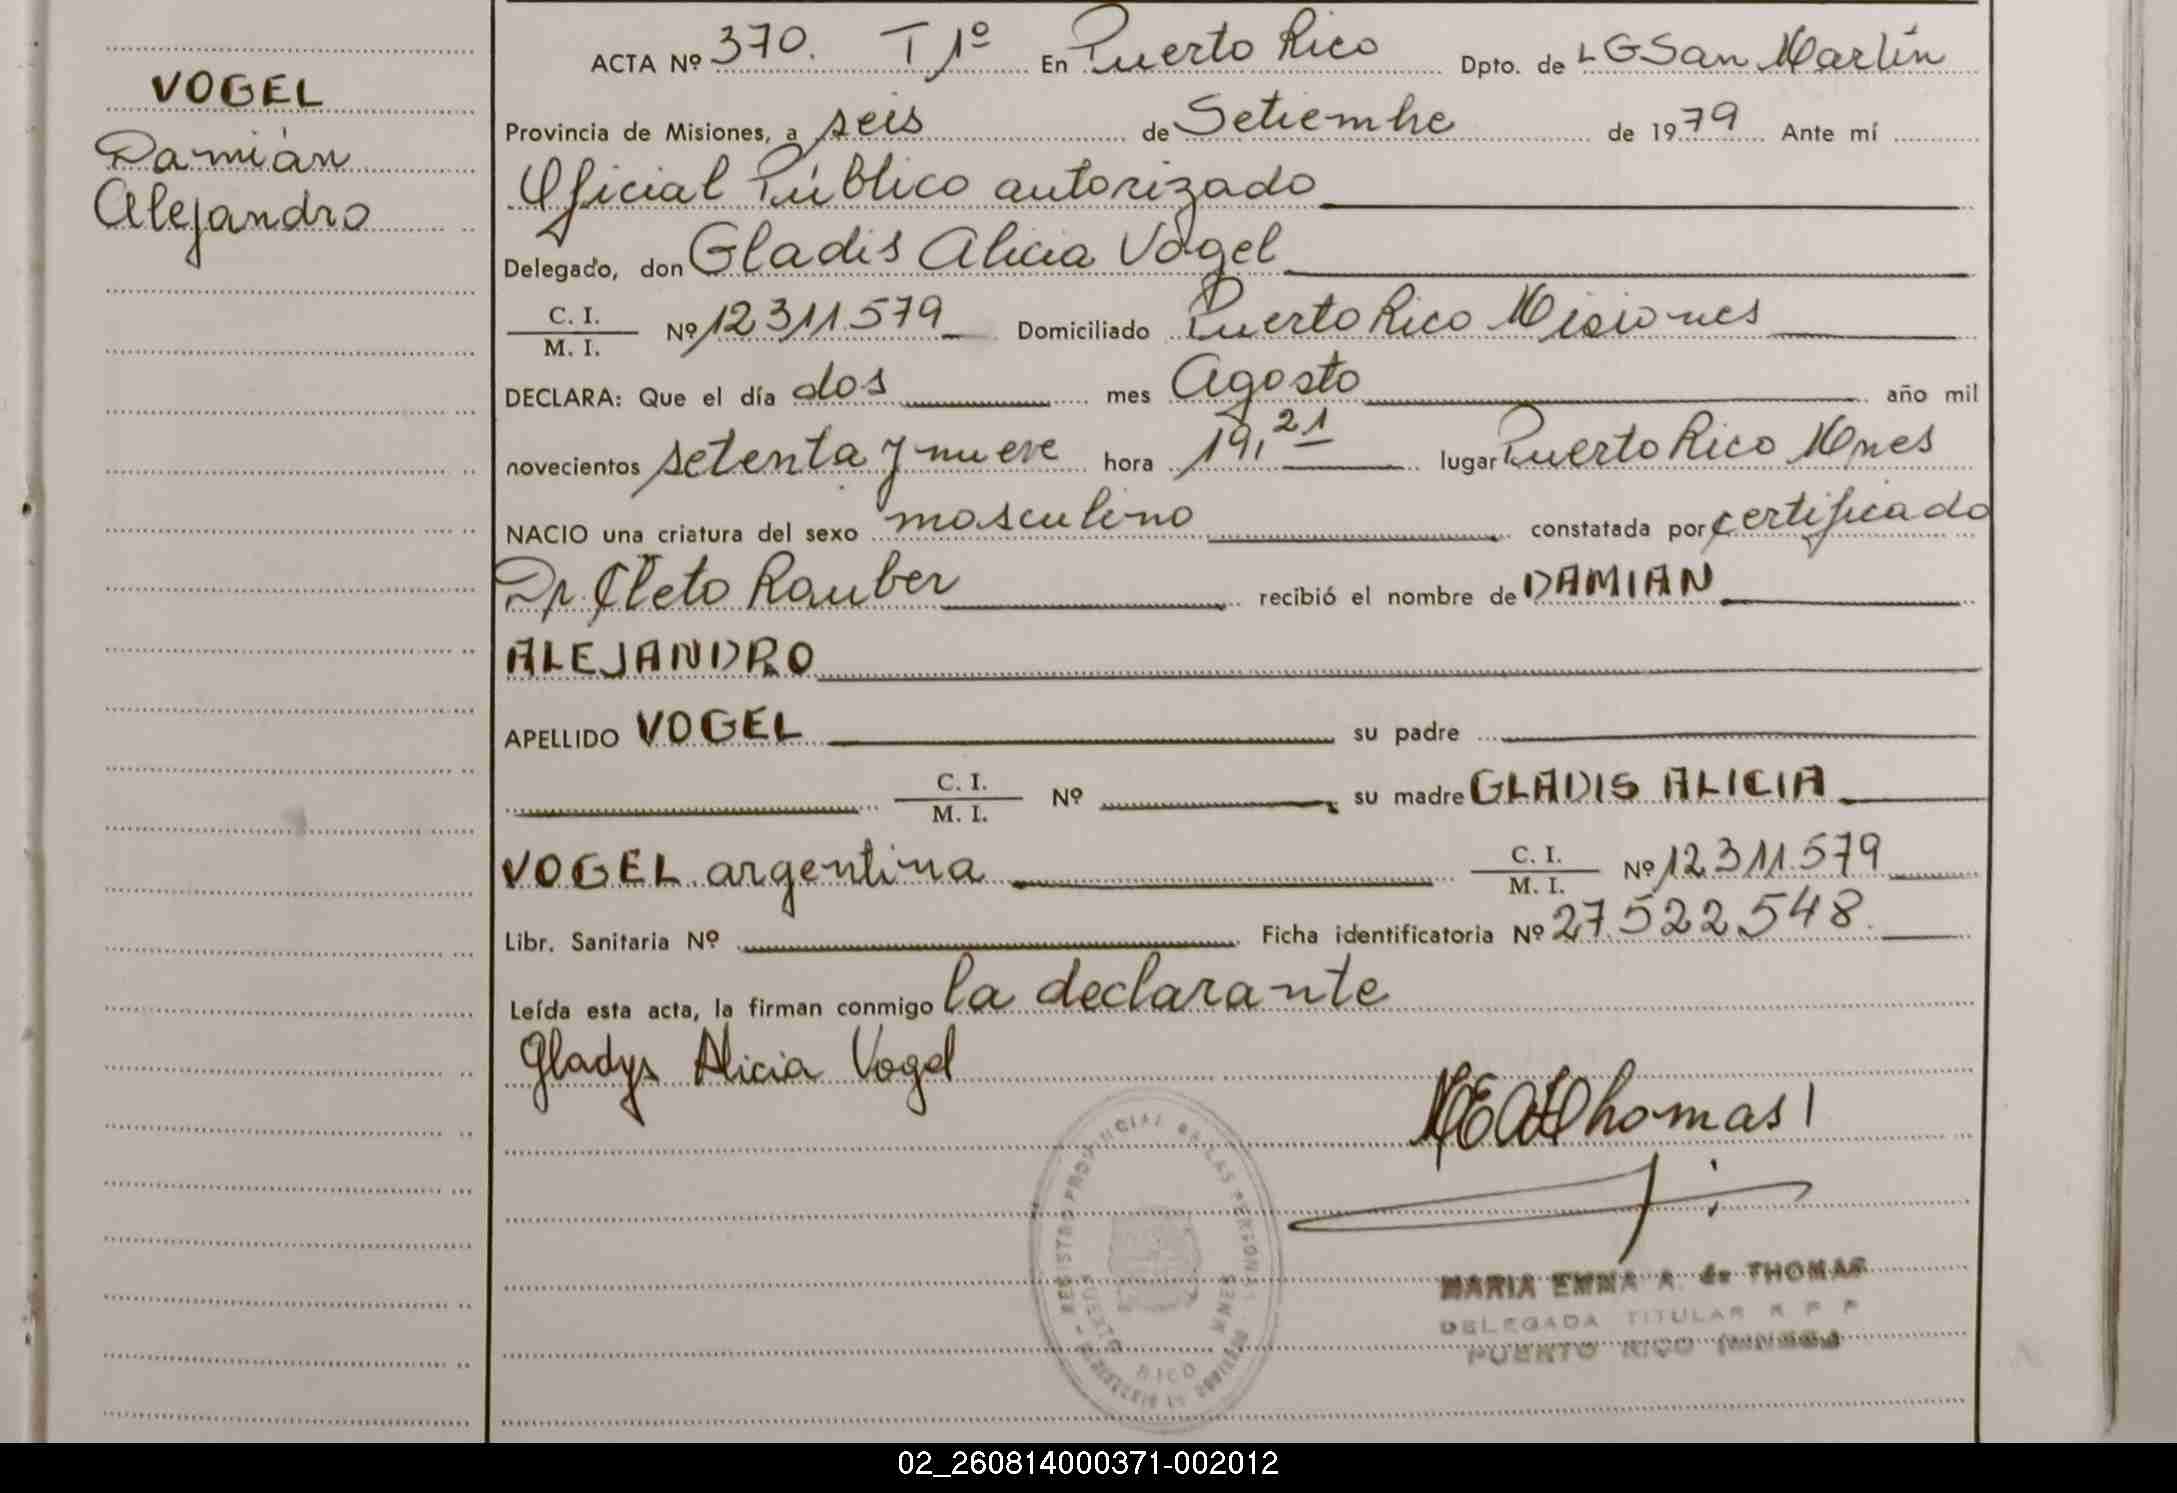 VOGEL
Damián
Alejandro
ACTA Nº 370. T 1º En Puerto Rico Dpto. de L G San Martín
Provincia de Misiones, a seis de Setiembre de 1979 Ante mí
Oficial Público autorizado
Delegado, don Gladis Alicia Vogel
C. I.
M. I. Nº 12311.579 Domiciliado Puerto Rico Misiones
DECLARA: Que el día dos mes Agosto año mil
novecientos setenta y nueve hora 19,21 lugar Puerto Rico Mnes
NACIO una criatura del sexo masculino constatada por certificado
Dr. Cleto Rauber recibió el nombre de DAMIAN
ALEJANDRO
APELLIDO VOGEL su padre
C. I.
M. I. Nº su madre GLADIS ALICIA
VOGEL argentina C. I.
M. I. Nº 12311.579
Libr. Sanitaria Nº Ficha identificatoria Nº 27.522.548.
Leída esta acta, la firman conmigo la declarante
Gladys Alicia Vogel
MEAdThomas
REGISTRO PROVINCIAL DE LAS PERSONAS
PUERTO RICO MNES
MARIA EMMA A. de THOMAS
DELEGADA TITULAR R P P
PUERTO RICO (MNES)
02_260814000371-002012